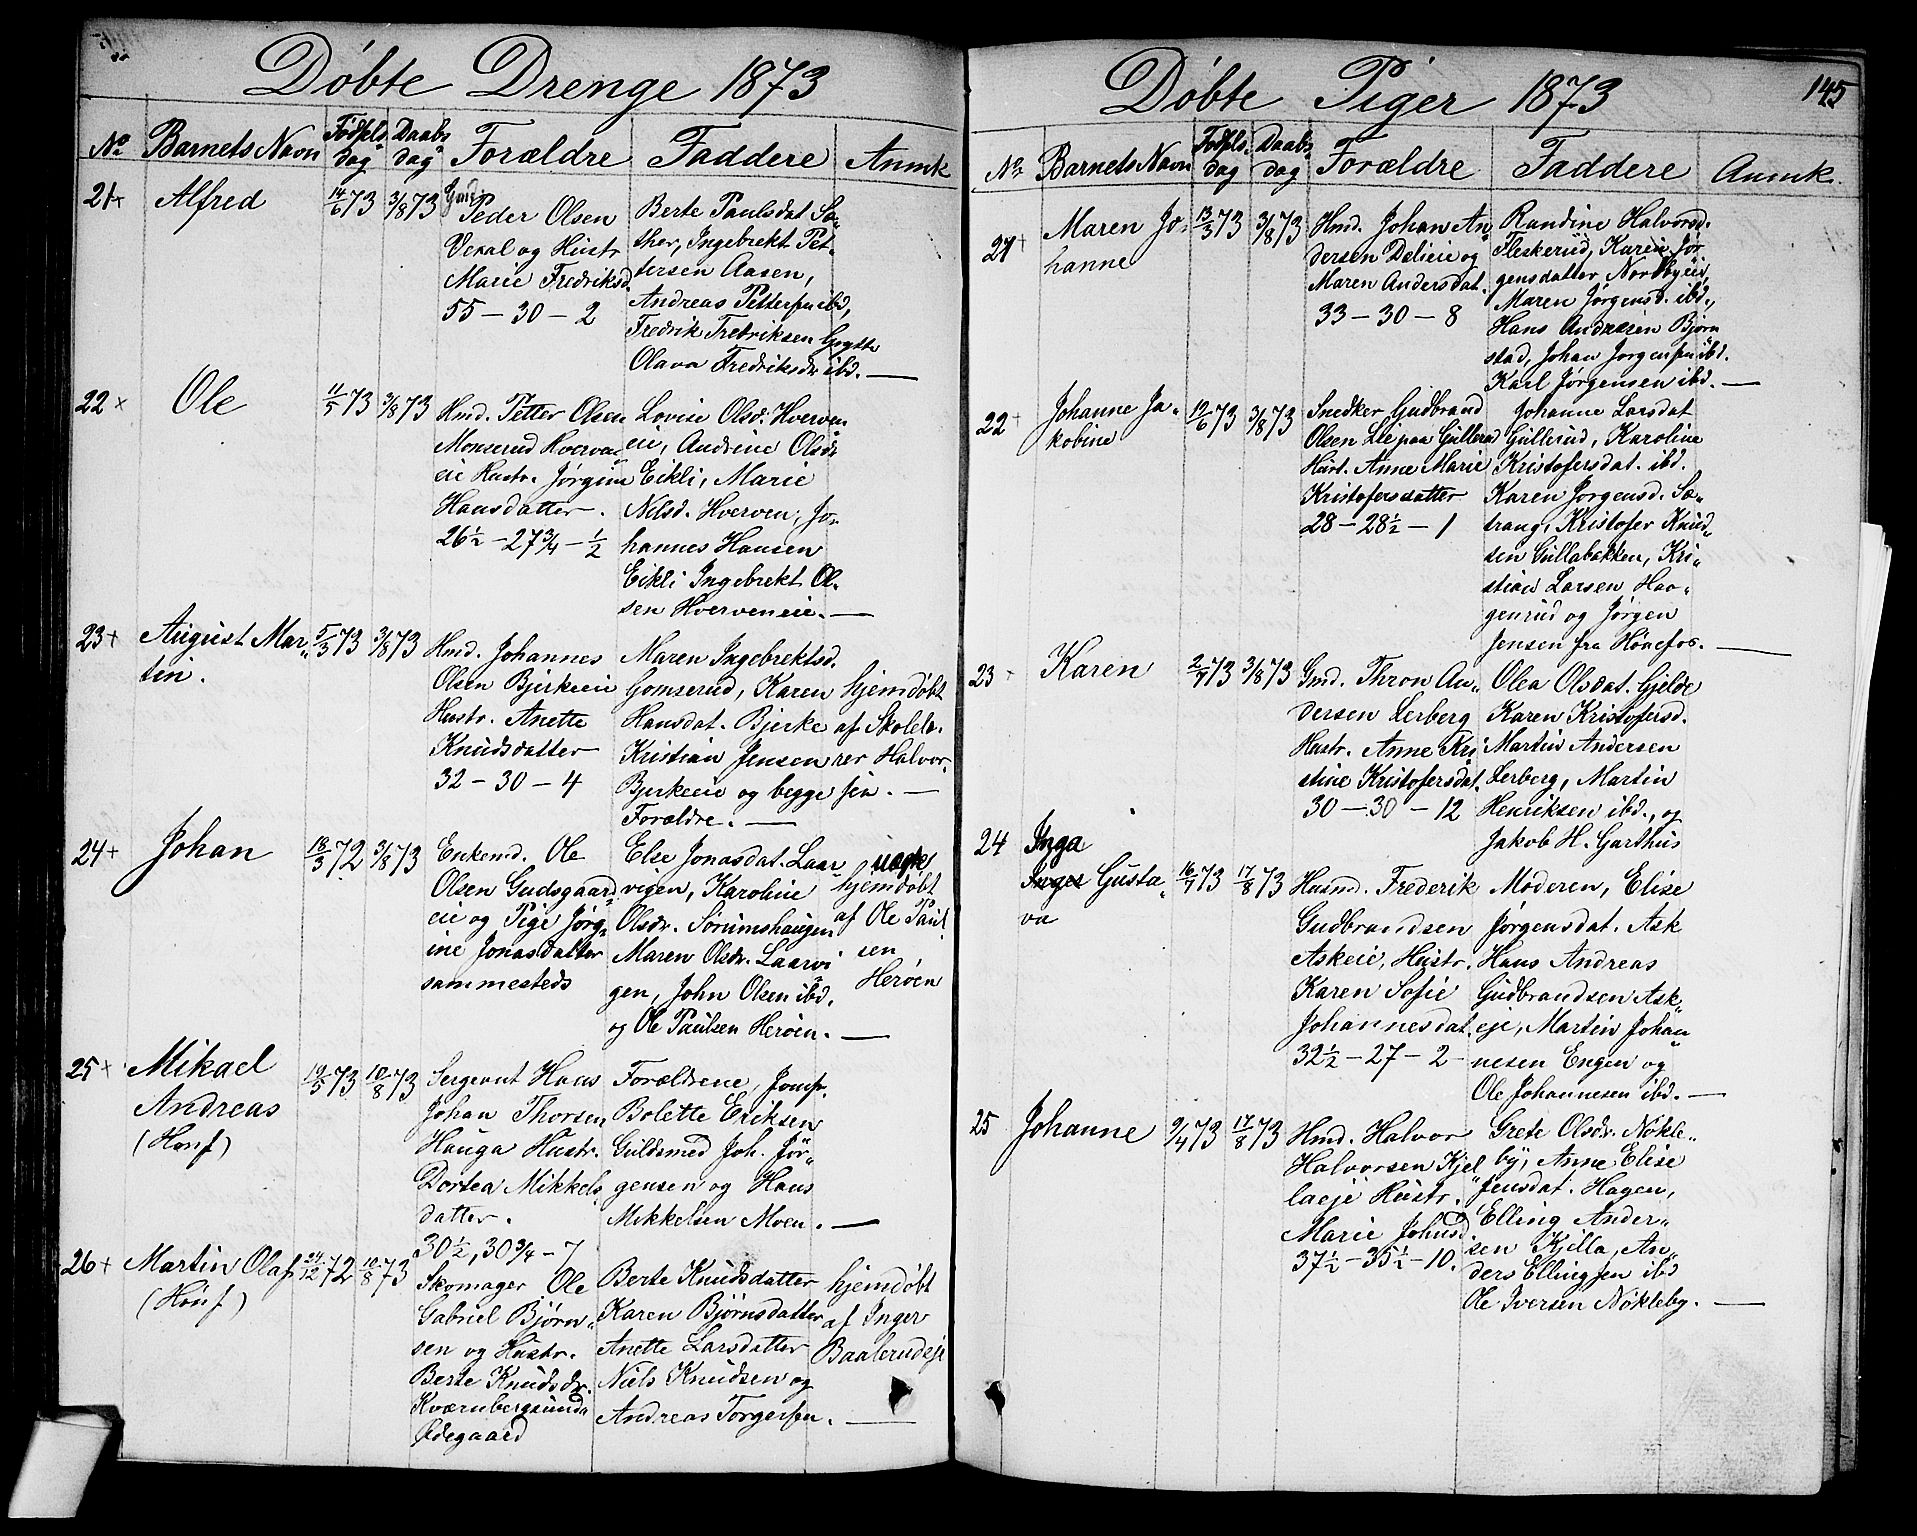 Döbte Drenge 1873
No Barnets Navn Födselsdag Daabsdag Forældre Faddere Anmk
21 Alfred 14/6 73 3/8 73
Peder Olsen
Vexal og Hustr
Marie Fredriksd.
55 – 30 – 2
Berte Paulsdat Sæ„
ther, Ingebrekt Pet„
tersen Aasen,
Andreas Pettersen ibd,
Fredrik Fredriksen Gagste
Olava Fredriksdr ibd. —
22 Ole 11/5 73 3/8 73
Hmd. Petter Olsen
Monserud Hverven
eie Hustr. Jørgine
Hansdatter.
26½ – 27¾ – ½
Lovise Olsd. Hverven
eie, Andrine Olsdr
Eikli, Marie
Nilsd. Hverven, Jo„
hannes Hansen
Eikli Ingebrekt Ol„
sen Hverveneie. —
23 August Mar„
tin.
5/3 73 3/8 73
Hmd. Johannes
Olsen Bjerkeeie
Hustr. Anette
Knudsdatter
32 – 30 – 4
Maren Ingebrektsd.
Gomserud, Karen
Hansdat. Bjerke
Kristian Jensen
Bjerkeeie og begge
Forældre. —
hjemdøbt
af Skolelæ„
rer Halvor„
sen. —
24 Johan 18/3 72 3/8 73
Enkemd. Ole
Olsen Gudsgaard
eie og Pige Jørg„
ine Jonasdatter
sammesteds
Else Jonasdat. Laar
vigen, Karoline
Olsdr. Sørumshaugen
Maren Olsdr. Laarvi
gen, John Olsen ibd.
og Ole Paulsen Herøen. —
uægte
hjemdøbt
af Ole Paul
sen
Herøen
25 Mikael
Andreas
(Hønf)
19/5 73 10/8 73
Sergeant Hans
Johan Thorsen
Hauga Hustr.
Dortea Mikkels
datter.
30½, 30¾ – 7
Forældrene, Jomfr.
Bolette Eriksen
Guldsmed Joh. Jör„
gensen og Hans
Mikkelsen Moen. —
26 Martin Olaf
(Hönf)
24/12 72 10/8 73
Skomager Ole
Gabriel Bjørn„
sen og Hustr.
Berte Knudsdr.
Kværnbergsund
Ødegaard
Berte Knudsdatter
Karen Bjørnsdatter
Anette Larsdatter
Niels Knudsen og
Andreas Torgersen. —
hjemdøbt
af Inger
Baalerudeje
Döbte Piger 1873 145
No Barnets Navn Födselsdag Daabsdag Forældre Faddere Anmk.
21 Maren Jo„
hanne
13/3 73 3/8 73
Hmd. Johan An„
dersen Delieie og
Maren Andersdat.
33 – 30 – 8
Randine Halvorsd.
Fleskerud, Karen Jør„
gensdatter Nordbyeie,
Maren Jørgensd. ibd.,
Hans Andresen Bjørn
stad, Johan Jørgensen ibd.
Karl Jørgensen ibd. —
22 Johanne Ja„
kobine
12/6 73 3/8 73
Snedker Gudbrand
Olsen Lie paa Gullerud
Hust. Anne Marie
Kristofersdatter
28 – 28½ – 1
Johanne Larsdat
Gullerud, Karoline
Kristofersdat. ibd.
Karen Jørgensd. Sæ„
trang, Kristofer Knud„
sen Gullabakken, Kri„
stian Larsen Haa„
genrud og Jørgen
Jensen fra Hönefos. —
23 Karen 2/7 73 3/8 73
Gmd. Thron An„
dersen Lerberg
Hustr. Anne Kri
stine Kristofersdat.
30 – 30 – 12
Olea Olsdat. Gjelde
Karen Kristofersd.
Martin Andersen
Lerberg, Martin
Henriksen ibd., og
Jakob H. Garthus
24 Inga
Inger Gusta„
va
16/7 73 17/8 73
Husmd. Frederik
Gudbrandsen
Askeie, Hustr.
Karen Sofie
Johannesdat.
32½ – 27 – 2
Moderen, Elise
Jørgensdat. Ask
Hans Andreas
Gudbrandsen Ask„
eje, Martin Johan„
nesen Engen og
Ole Johannesen ibd. —
25 Johanne 9/4 73 17/8 73
Hmd. Halvor
Halvorsen Kjel
laeje Hustr.
Marie Johnsd.
37½ – 35½ – 10.
Grete Olsdr. Nökle„
by, Anne Elise
Jensdat. Hagen,
Elling Ander„
sen Kjilla, An„
ders Ellingsen ibd
Ole Iversen Nökleby. —